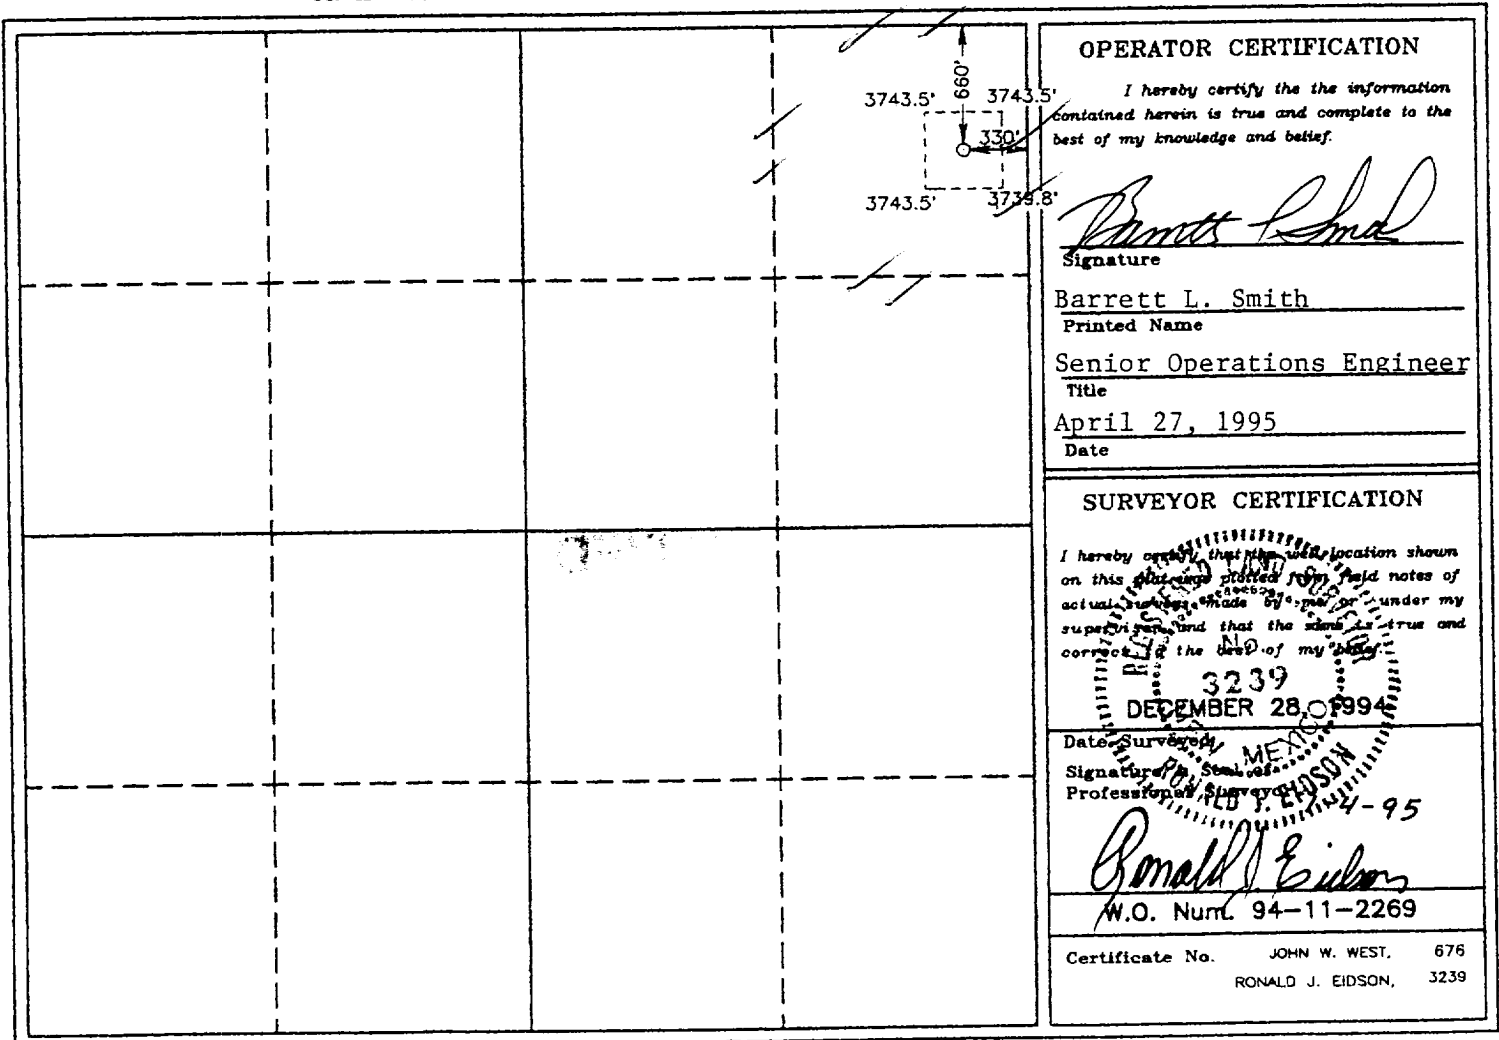 660'
3743.5' 3743.5'
330'
3743.5' 3739.8'
OPERATOR CERTIFICATION
I hereby certify the the information
contained herein is true and complete to the
best of my knowledge and belief.
Signature
Barrett L. Smith
Printed Name
Senior Operations Engineer
Title
April 27, 1995
Date
SURVEYOR CERTIFICATION
I hereby certify that the well location shown
on this plat was plotted from field notes of
actual surveys made by me or under my
supervison, and that the same is true and
correct to the best of my belief.
REGISTERED LAND SURVEYOR
No.
3239
NEW MEXICO
RONALD J. EIDSON
DECEMBER 28, 1994
Date Surveyed
Signature & Seal of
Professional Surveyor
4-95
Ronald J Eidson
W.O. Num. 94-11-2269
Certificate No. JOHN W. WEST, 676
RONALD J. EIDSON, 3239